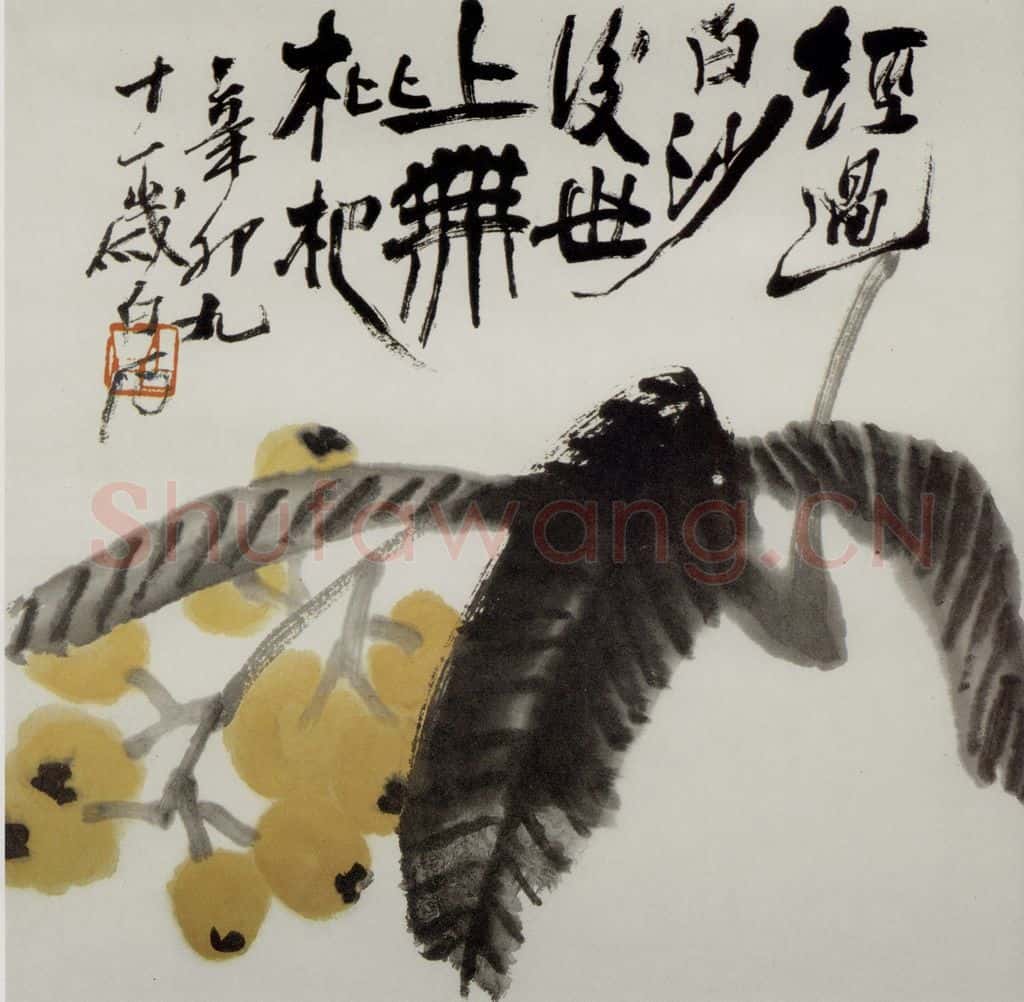 經過
白沙
後世
上無
枇杷
辛卯九
十一歲白石
Shufawang.CN